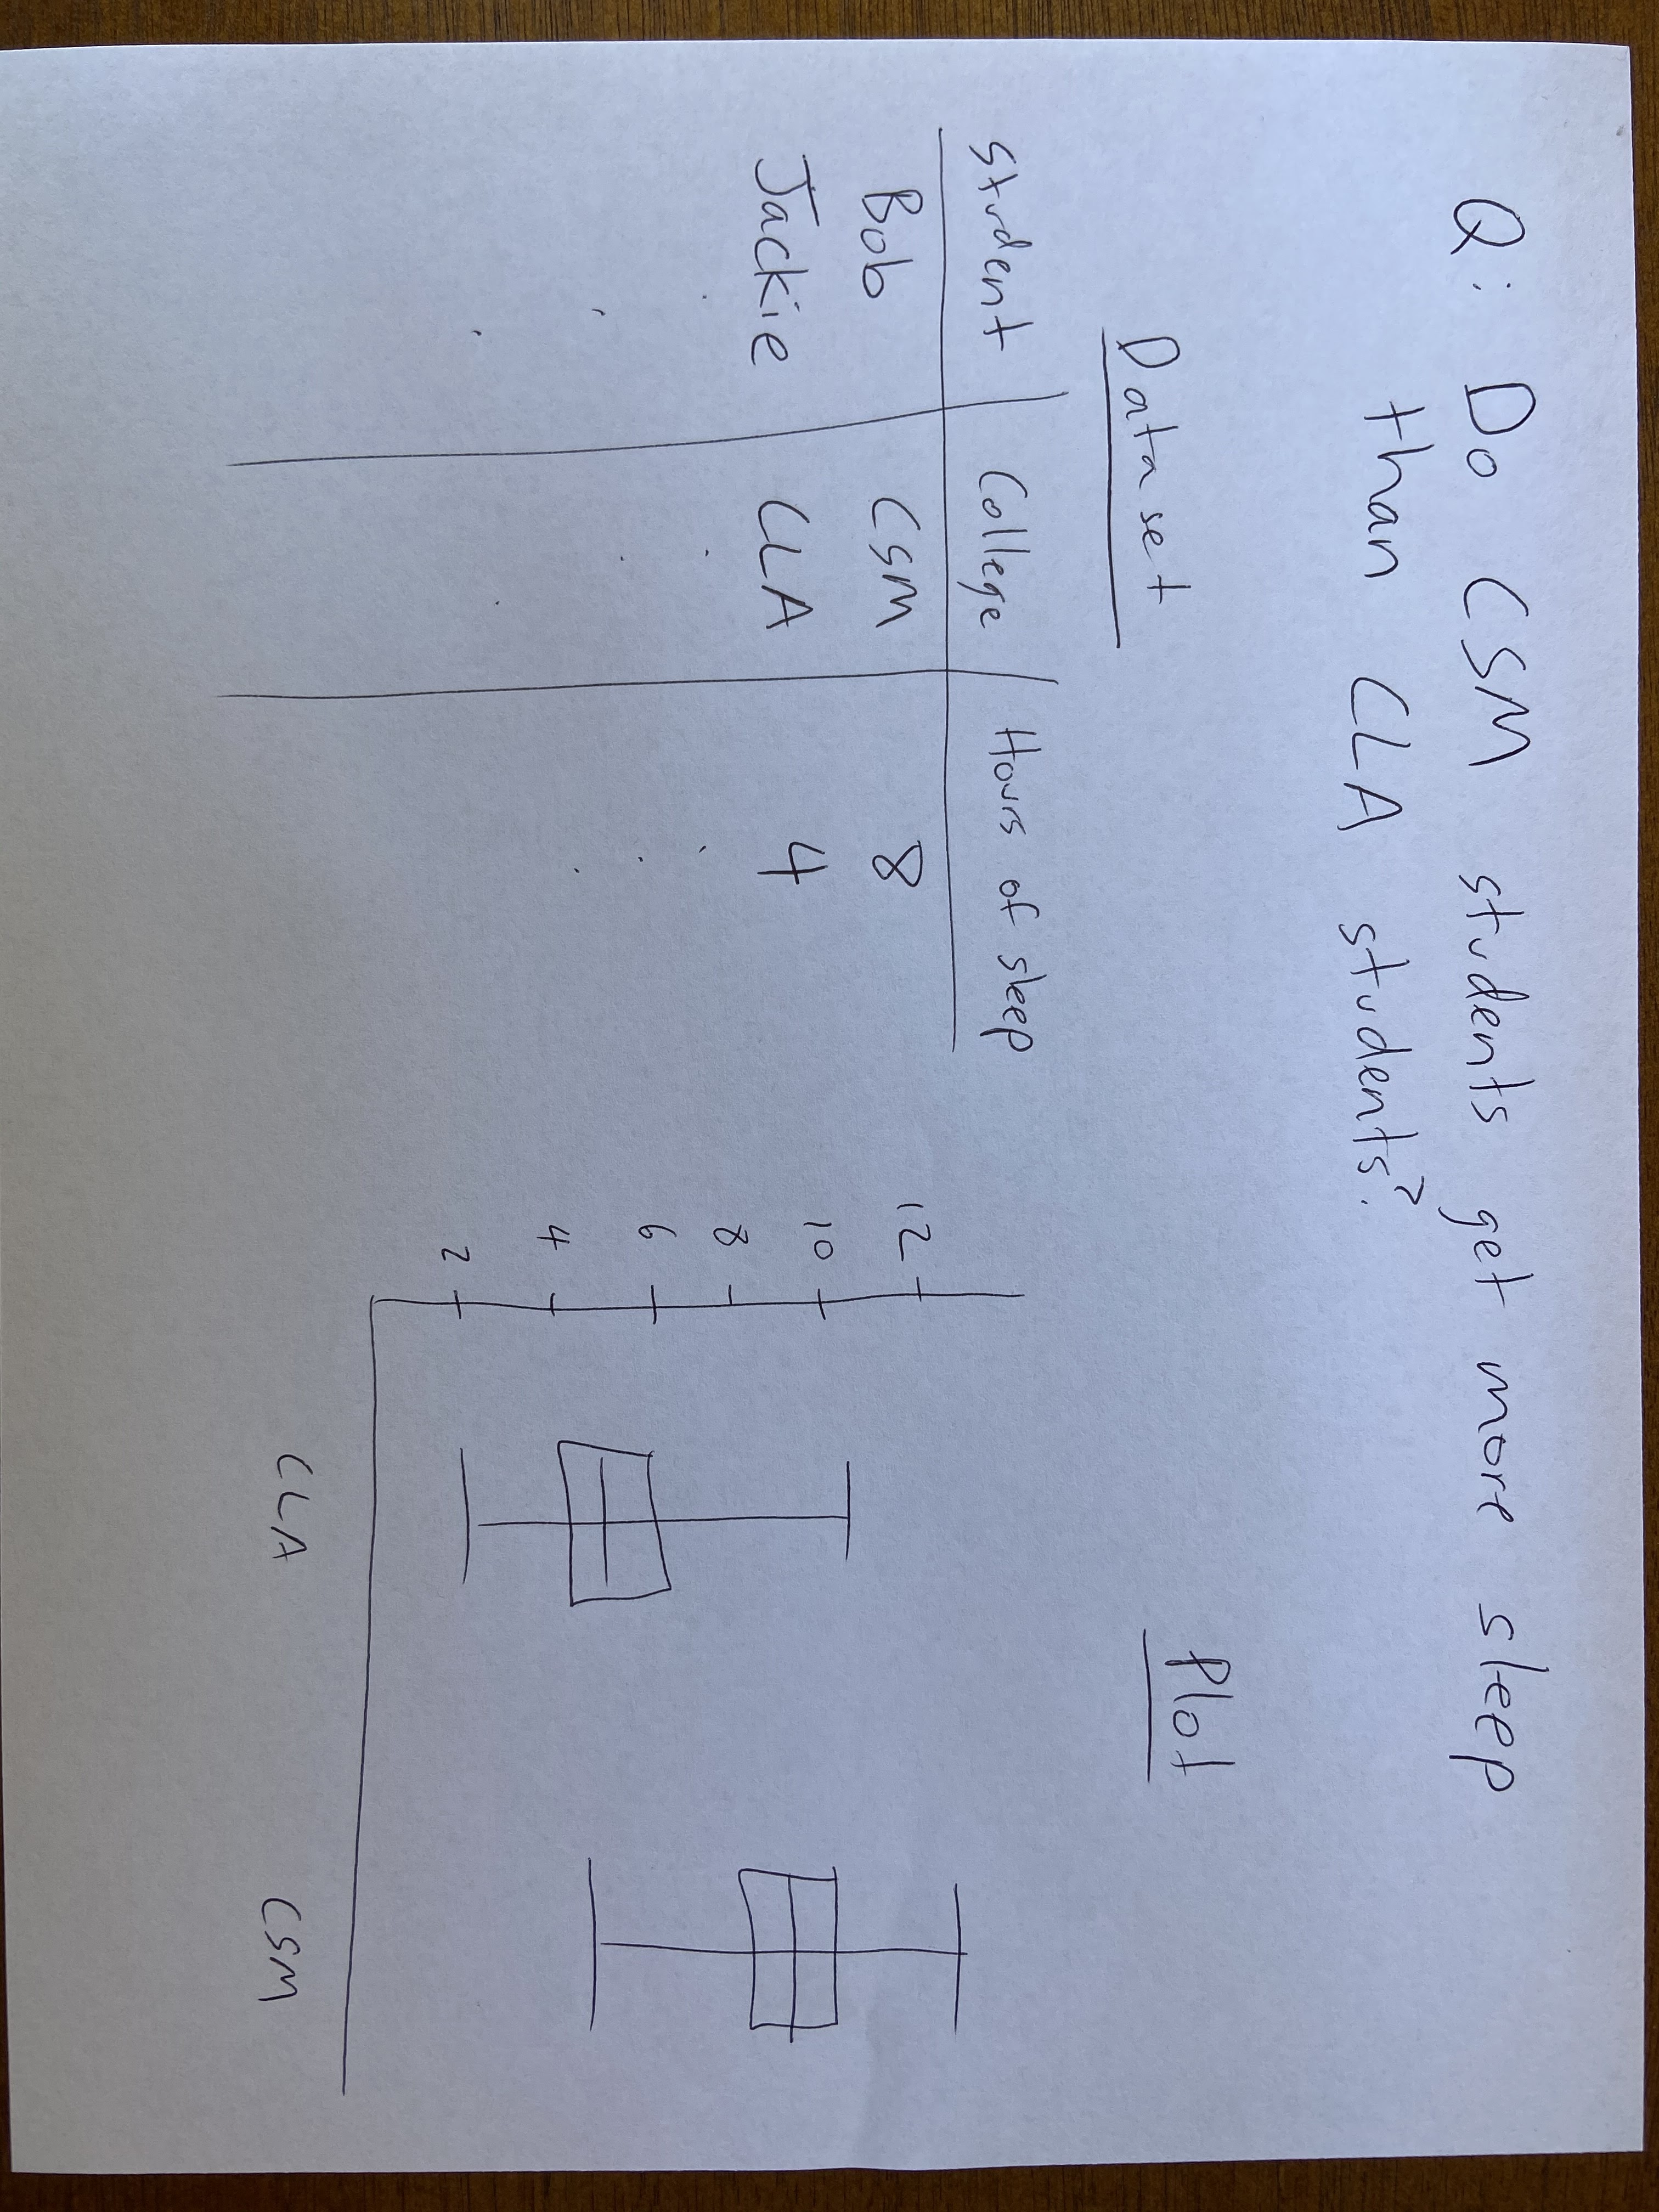 Q: Do CSM students get more sleep
than CLA students?
Dataset
student College Hours of sleep
Bob CSM 8
Jackie CLA 4
Plot
12
10
8
6
4
2
CLA CSM